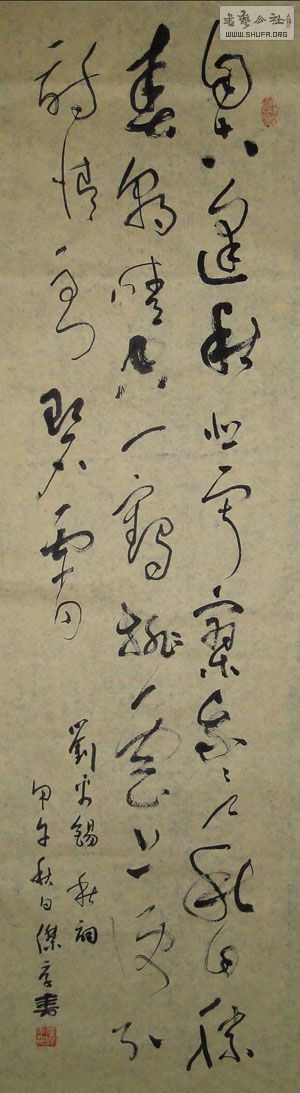 書藝公社
WWW.SHUFA.ORG
自古逢秋悲寂寥我言秋日勝
春朝晴空一鶴排雲上便引
詩情到碧霄
劉禹錫 秋詞
甲午秋日傑書